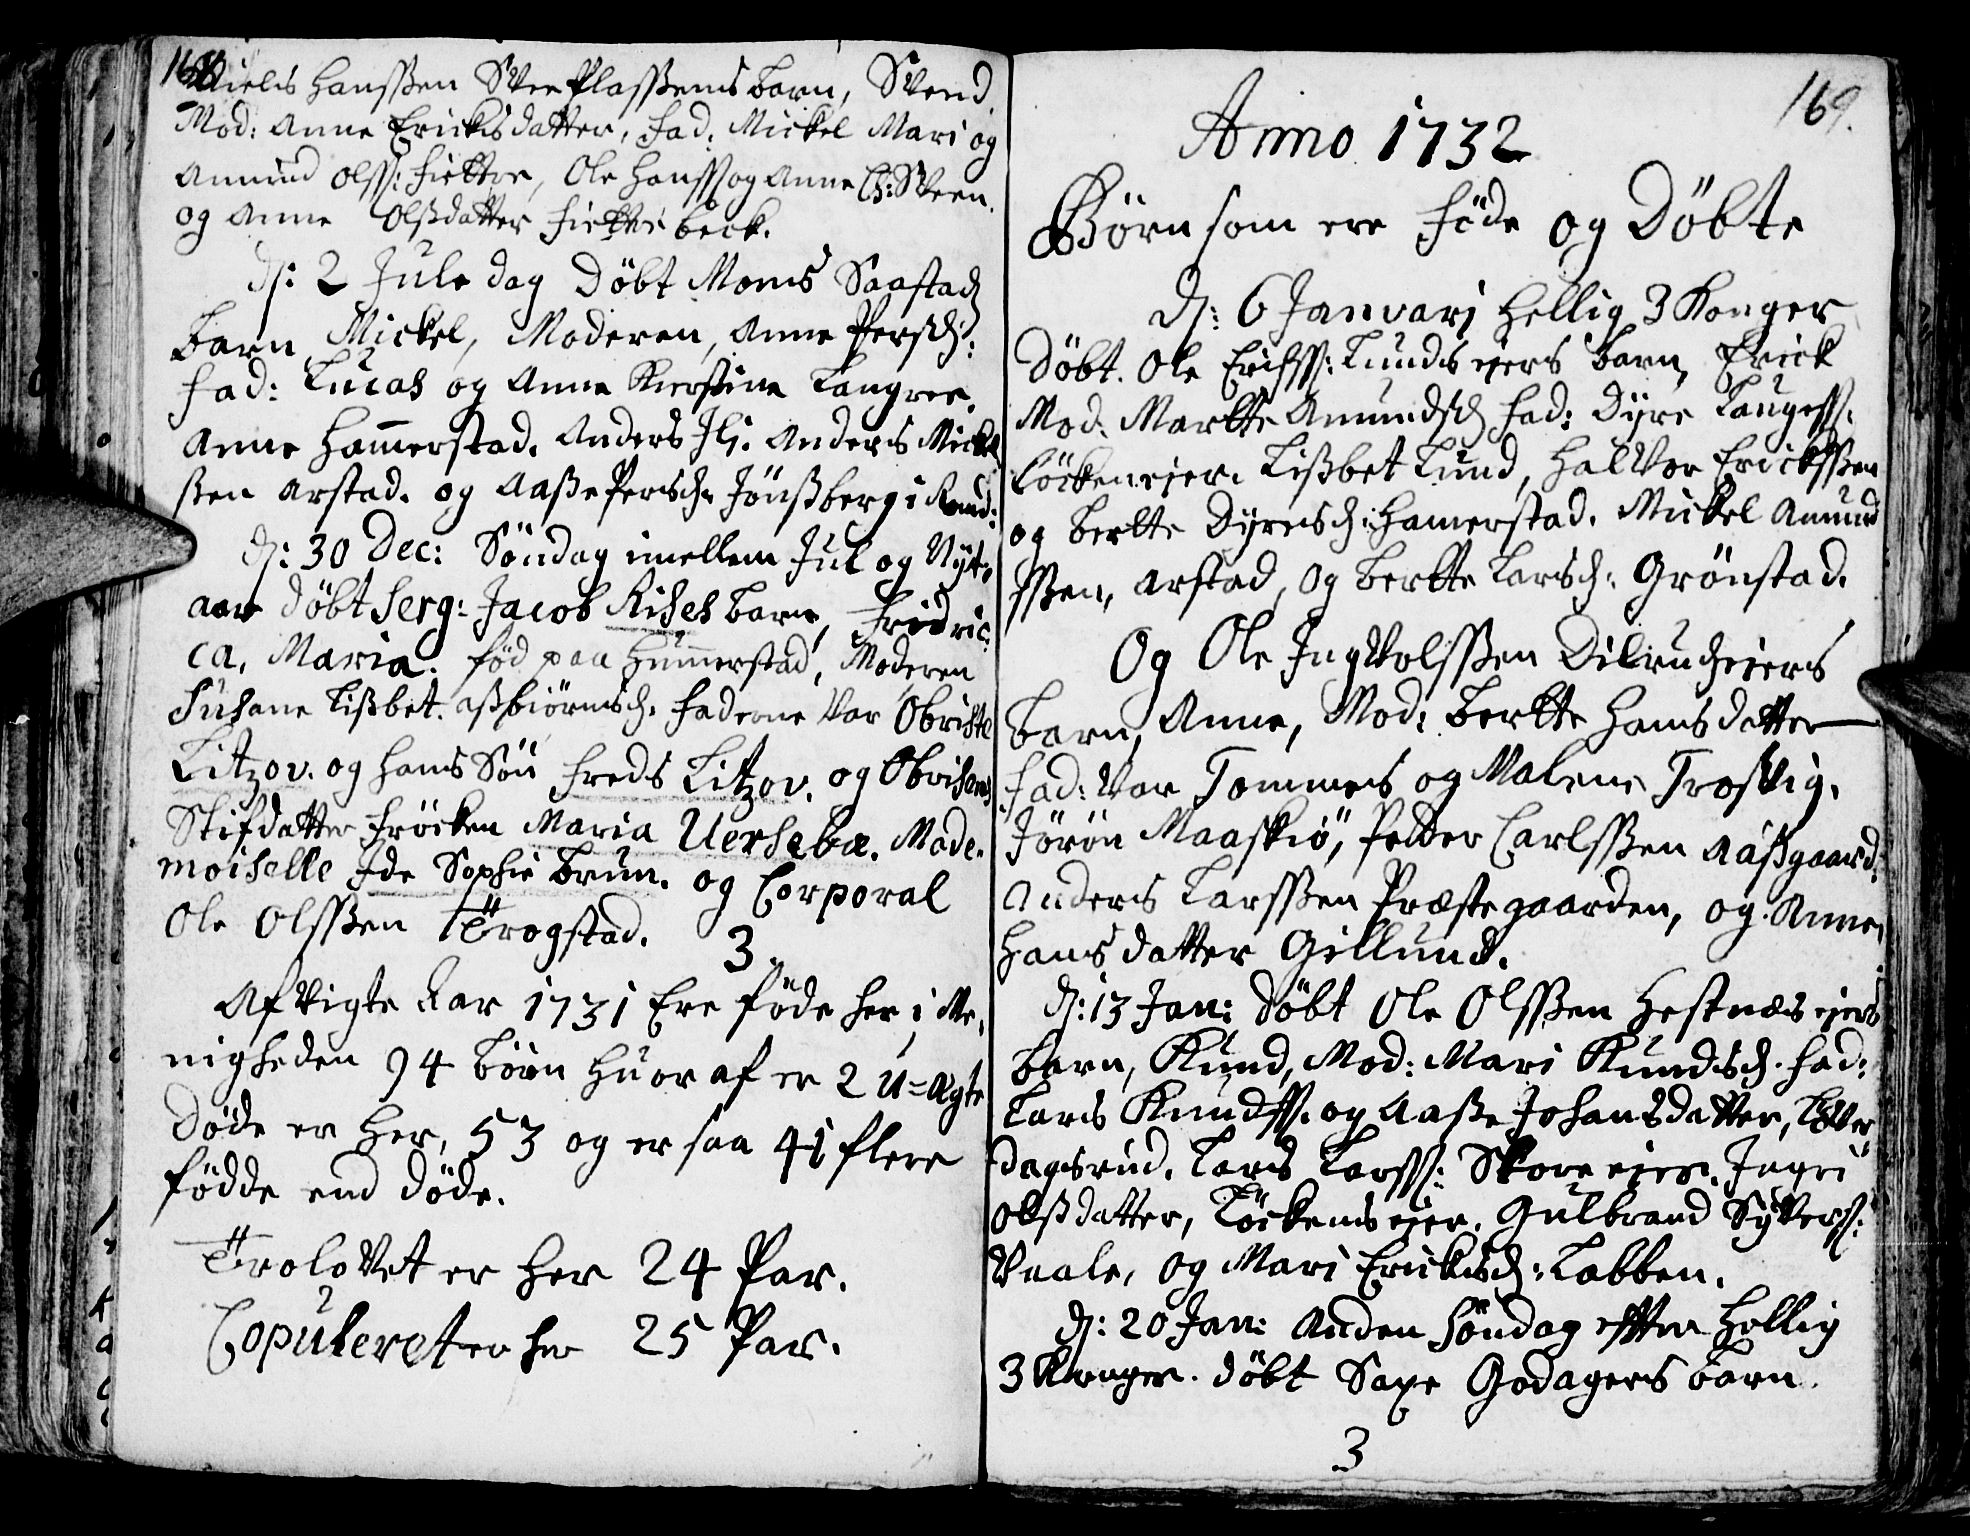 168
Niels Hansßen Svee Plassens barn, Svend.
Mod: Anne Ericksdatter, Fad: Mickel Mari og
Amund Olss: Fiettre, Ole Hanss og Anne Ch: Sveen.
og Anne Olsdatter Fiettebeck.
d: 2 Jule dag Døbt Mons Saastad
barn Mickel, Moderen, Anne Persd:
Fad: Lucas og Anne Kierstine Langree.
Anne Hammerstad. Anders Ili. Anders Mickel
ßen arstad. og Aaße Persd: Jønsberg i Romd:
d: 30 Dec: Søndag imellem Jul og Nyt-
aar døbt Serg: Jacob Rises barn, Fridric-
ca, Maria. fød paa Hummerstad, Moderen
Susane Lisbet. asbiørnsd: Faderne var Obriste
Litzov. og hans Søn Freds Litzov. og Obristens
Stifdatter Frøcken Maria Uersebæ. Made-
moiselle Ide Sophie Brun. og Corporal
Ole Olsßen Trogstad.
3
Afvigte Aar 1731 Ere føde her i Me-
nigheden 94 børn Huor af er 2 U=ægte
Døde er her, 53 og er saa 41 flere
fødde end døde.
Trolovet er her 24 Par.
Copuleret er her 25 Par.
169.
Anno 1732
Børn som ere føde og Døbte
d: 6 Januarj Hellig 3 Konger
Døbt. Ole Erichss: Lunds eiers barn, Erick
Mod: Martte Amundsd: Fad: Dyre Laugess:
Løcken eier. Lisbet Lund, Halvor Ericksßen
og bertte Dyresd: Hamerstad. Mickel Amund
sßen, arstad, og bertte Larsd: Grønstad.
Og Ole Ingvolsßen Dilrud eiers
barn, Anne, Mod: bertte Hansdatter
Fad: var Tommes og Malene Trosvig,
Jørøn Maaskiø, Petter Carlsßen Aasgaard.
Anders Larsßen Præstegaarden, og Anne
Hansdatter Gillund.
d: 13 Jan: Døbt Ole Olsßen Hestnæs eiers
barn, Knud, Mod: Mari Knudsd: Fad:
Lars Knudss. og Aaße Johansdatter,
dagsrud. Lars Larss: Skore eier. Ingri
Olsdatter, Løckens eier. Gulbrand Syvers:
Vaale, og Mari Ericksd: Labben.
d: 20 Jan: Anden Søndag effter Hellig
3 Konger. døbt Saxe Godagers barn.
3